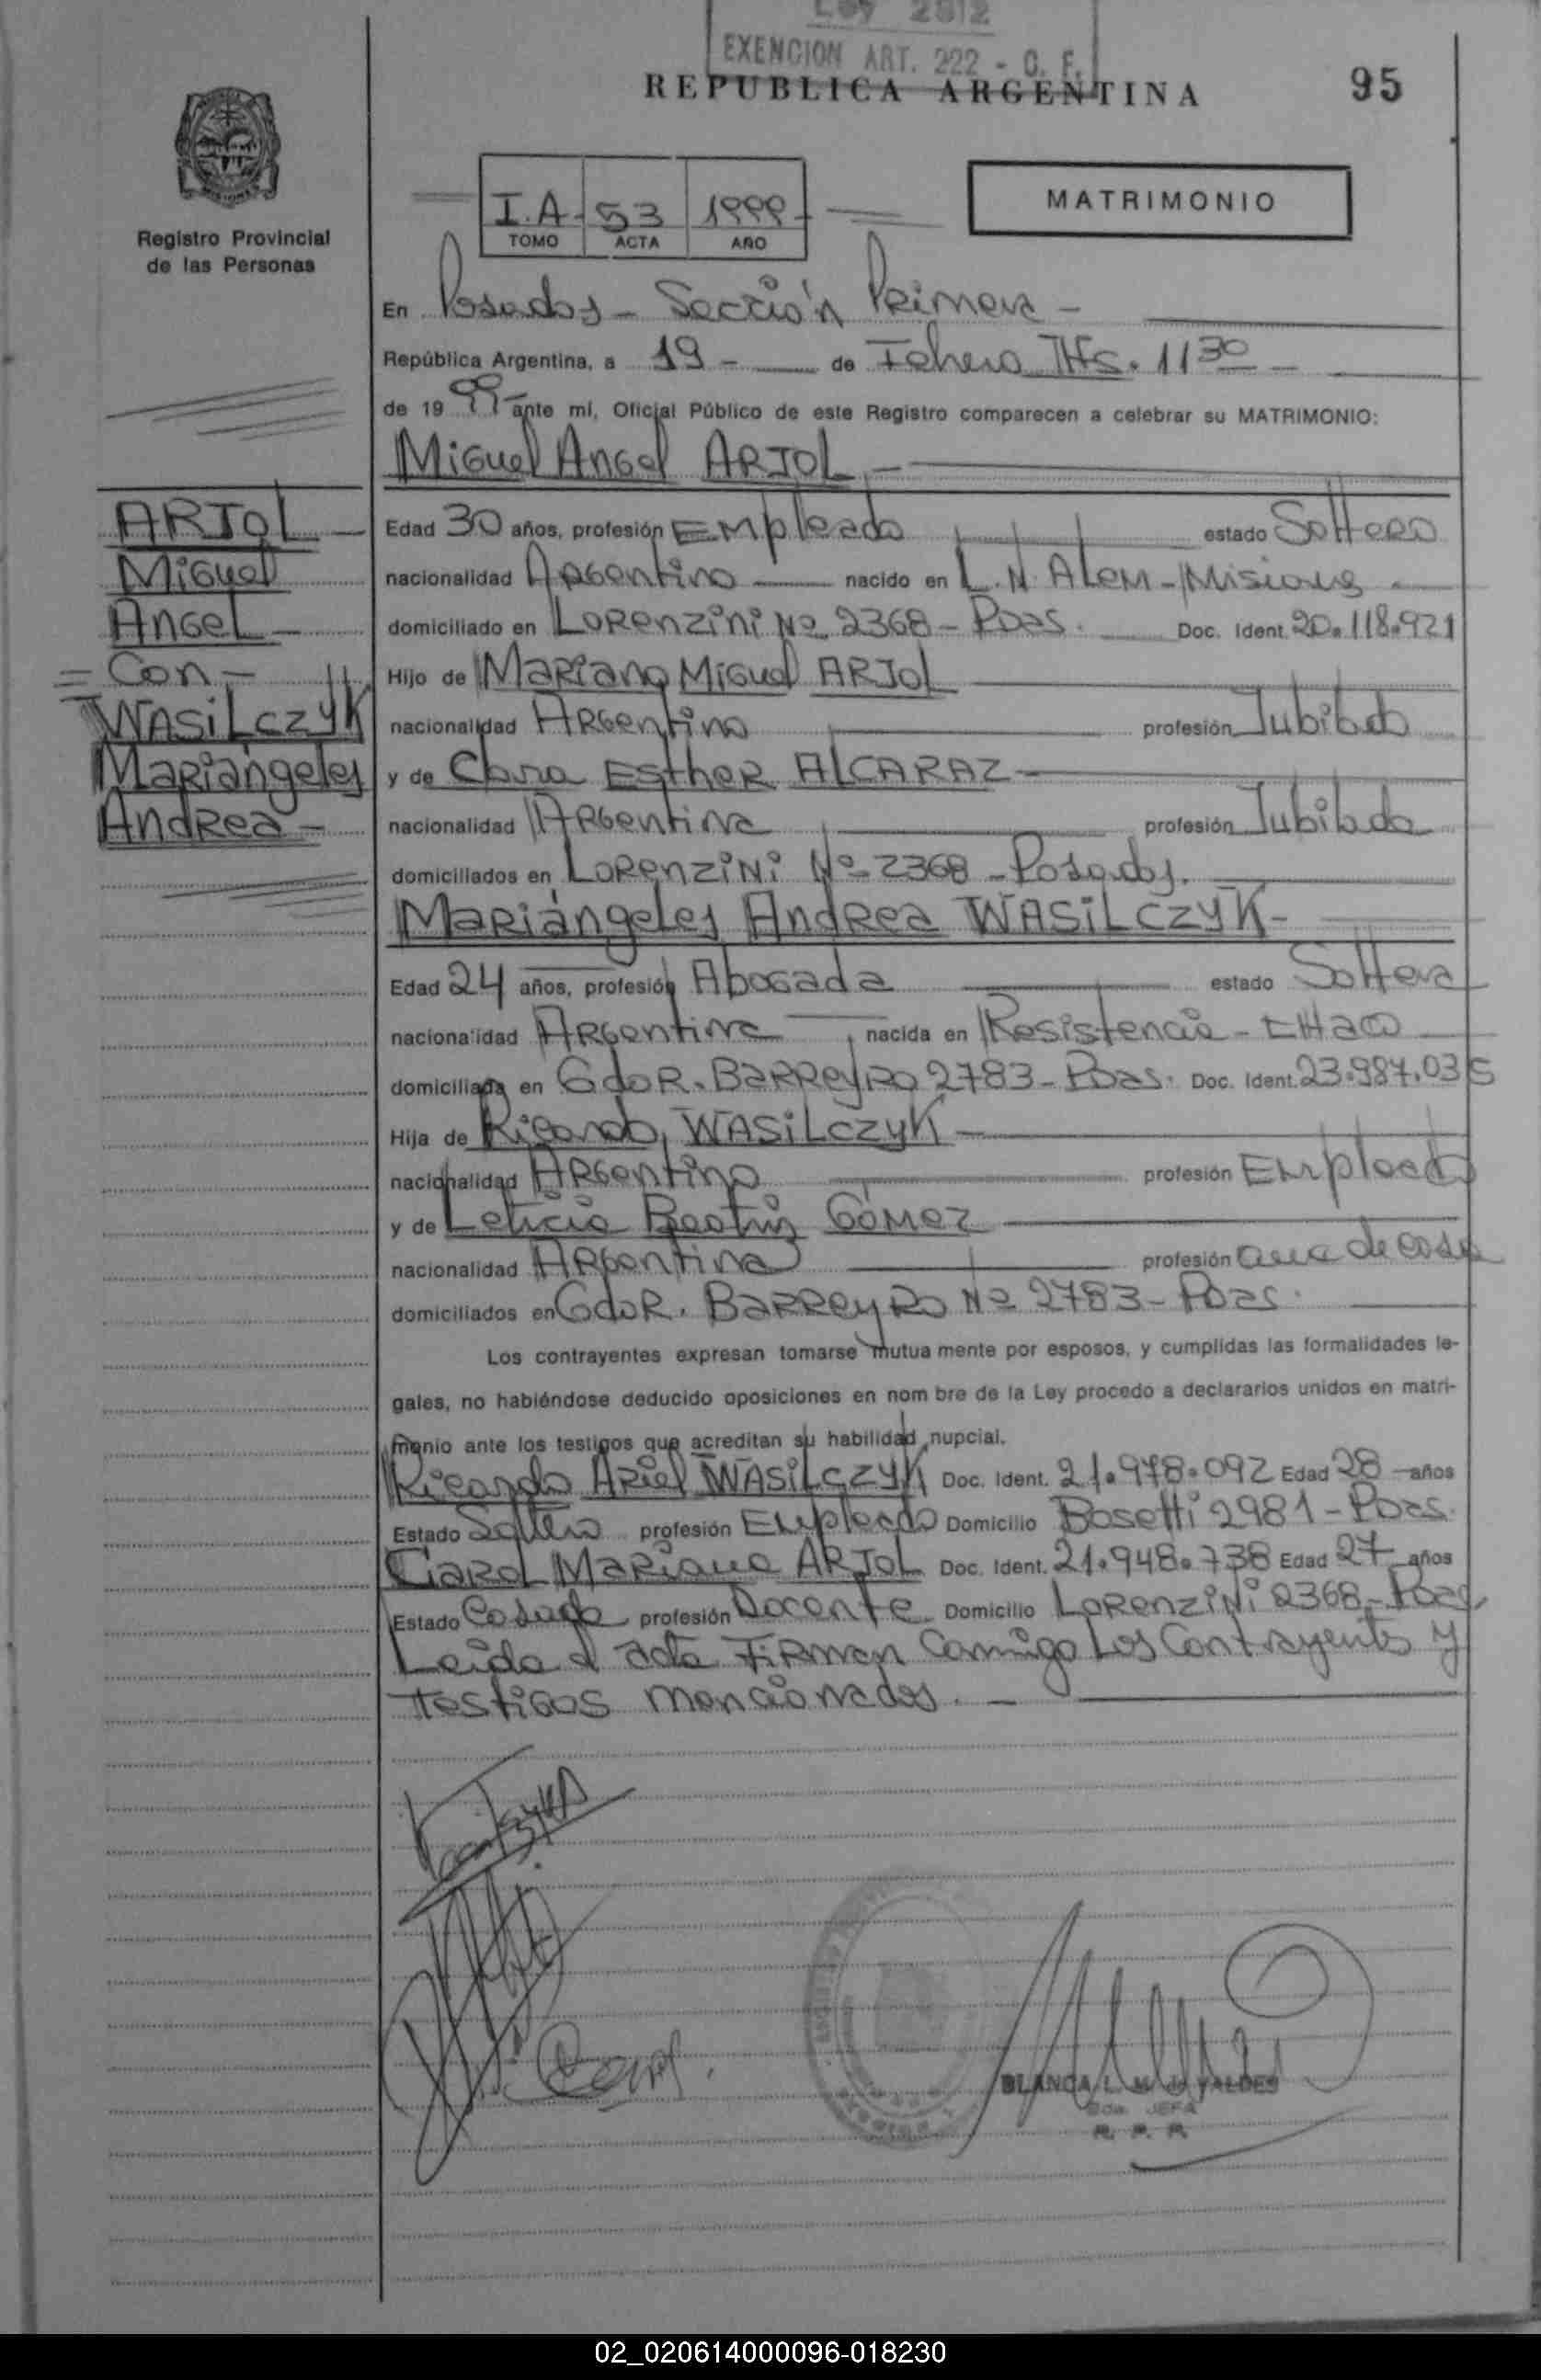 Ley 2812
EXENCION ART. 222 - C. F.
REPUBLICA ARGENTINA
95
Registro Provincial
de las Personas
I.A- 53 1999-
TOMO ACTA AÑO
MATRIMONIO
En Posadas - Sección Primera -
República Argentina, a 19 - de Febrero Hs. 11 30 -
de 19 99 - ante mí, Oficial Público de este Registro comparecen a celebrar su MATRIMONIO:
Miguel Angel ARJOL -
ARJOL -
Miguel
Angel -
= Con -
WASiLczyK
Mariángeles
Andrea -
Edad 30 años, profesión Empleado estado Soltero
nacionalidad Argentino nacido en L.N. Alem - Misiones -
domiciliado en Lorenzini Nº 2368 - Pdas. Doc. Ident. 20.118.921
Hijo de Mariano Miguel ARJOL
nacionalidad Argentino profesión Jubilado
y de Clara Esther ALCARAZ -
nacionalidad Argentina profesión Jubilada
domiciliados en Lorenzini Nº 2368 - Posadas.
Mariángeles Andrea WASiLCZYK -
Edad 24 años, profesión Abogada estado Soltera
nacionalidad Argentina nacida en Resistencia - CHaco
domiciliada en Gdor. Barreyro 2783 - Pdas. Doc. Ident. 23.987.035
Hija de Ricardo WASiLczyK -
nacionalidad Argentino profesión Empleado
y de Leticia Beatriz Gómez
nacionalidad Argentina profesión ama de casa
domiciliados en Gdor. Barreyro Nº 2783 - Pdas.
Los contrayentes expresan tomarse mutua mente por esposos, y cumplidas las formalidades le-
gales, no habiéndose deducido oposiciones en nom bre de la Ley procedo a declararlos unidos en matri-
monio ante los testigos que acreditan su habilidad nupcial.
Ricardo Ariel WASiLCZYK Doc. Ident. 21.978.092 Edad 28 - años
Estado Soltero profesión Empleado Domicilio Bosetti 2981 - Pdas.
Carol Mariana ARJOL Doc. Ident. 21.948.738 Edad 27 años
Estado Casada profesión Docente Domicilio Lorenzini 2368 - Pdas,
Leída el acta Firman Conmigo Los Contrayentes y
testigos mencionados. -
Carol.
BLANCA L. M. de VALDES
JEFA
R. P. P.
02_020614000096-018230